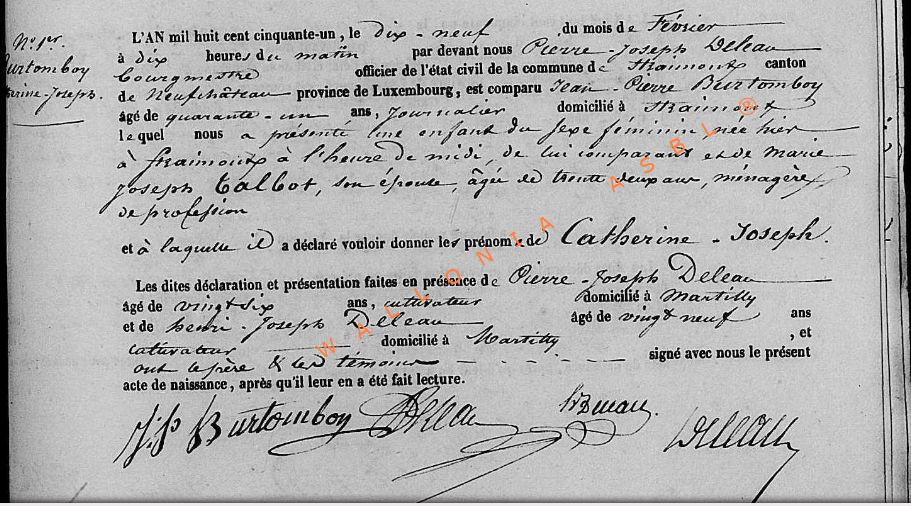 N° 1er.
Burtomboy
Catherine-Joseph.
L'AN mil huit cent cinquante-un, le dix-neuf du mois de Février
à dix heures du matin par devant nous Pierre-Joseph Deleau
bourgmestre officier de l'état civil de la commune de Straimont canton
de Neufchâteau province de Luxembourg, est comparu Jean-Pierre Burtomboy
âgé de quarante-un ans, journalier domicilié à Straimont
lequel nous a présenté une enfant du sexe féminin née hier
à Straimont à l'heure de midi, de lui comparant et de Marie
Joseph Talbot, son épouse, âgée de trente deux ans, ménagère
de profession
et à laquelle il a déclaré vouloir donner les prénoms de Catherine-Joseph.
Les dites déclaration et présentation faites en présence de Pierre-Joseph Deleau
âgé de vingt six ans, cultivateur domicilié à Martilly
et de henri-Joseph Deleau âgé de vingt neuf ans
cultivateur domicilié à Martilly, et
ont le père & les témoins signé avec nous le présent
acte de naissance, après qu'il leur en a été fait lecture.
J.P Burtomboy Deleau Deleau
WALLONIA ASBL ®